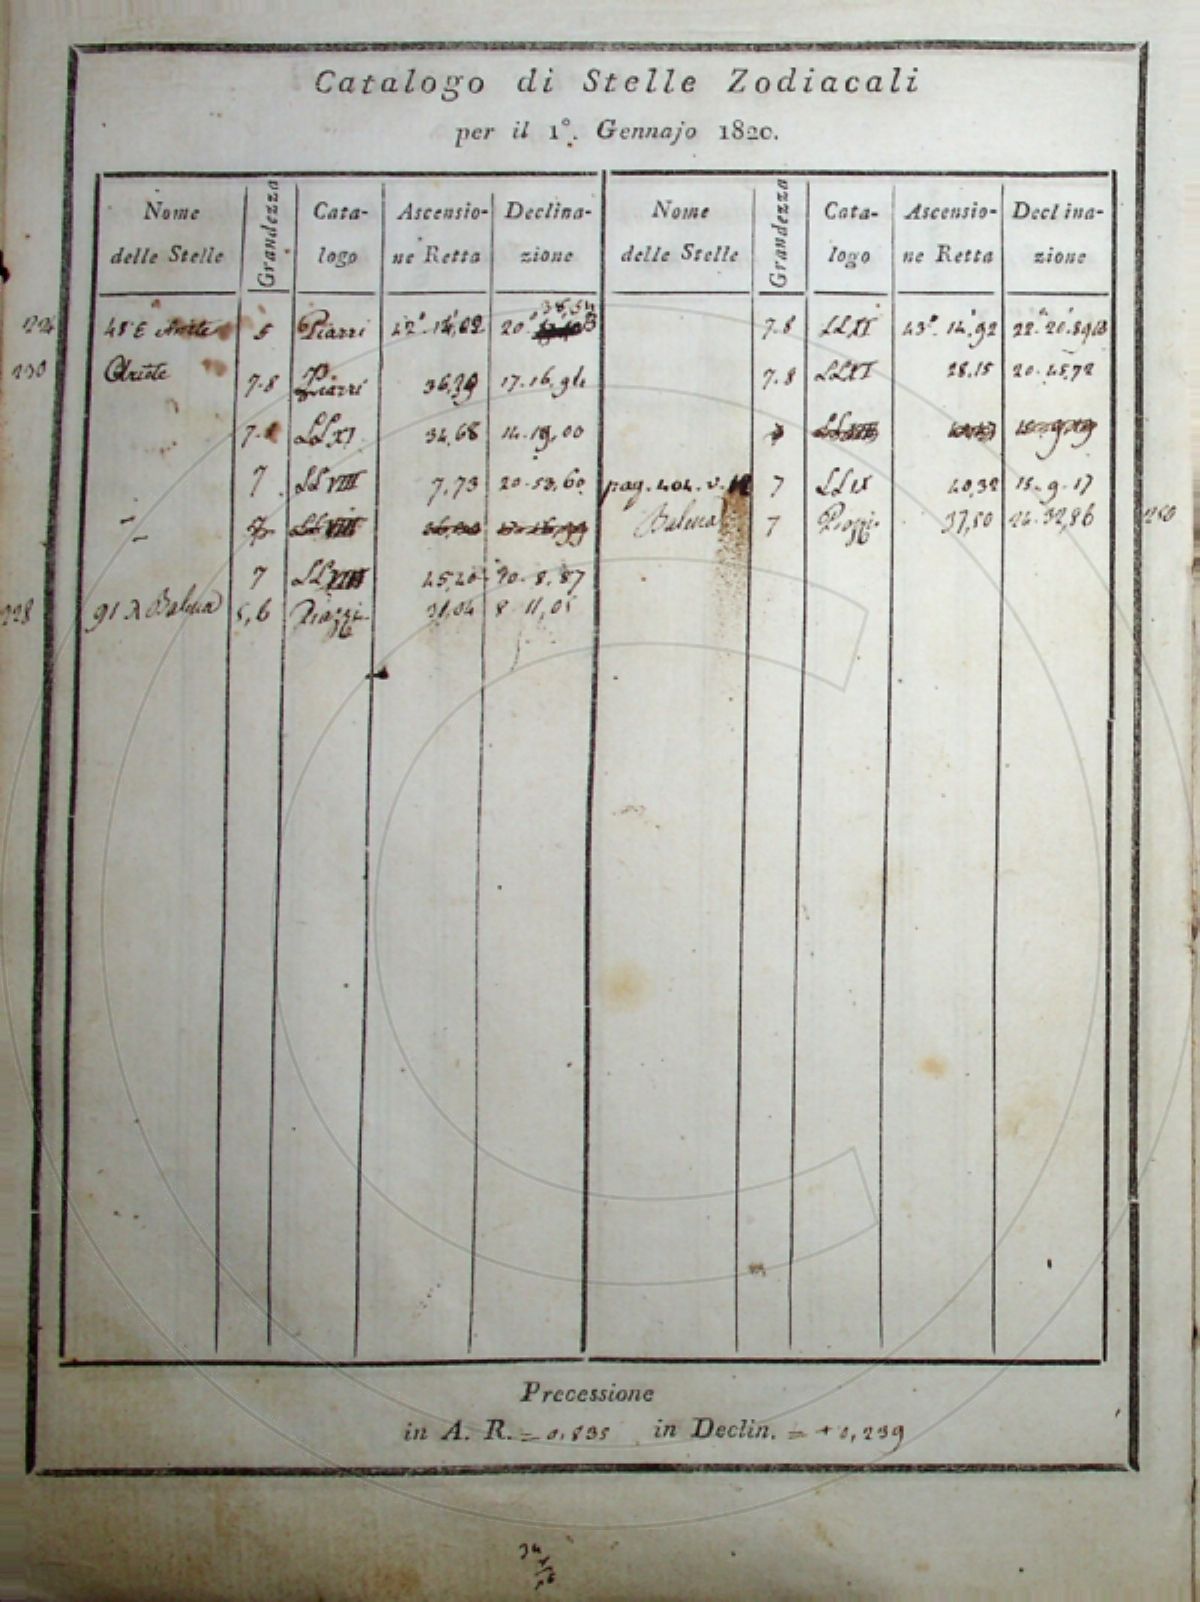 Catalogo di Stelle Zodiacali
per il 1°. Gennajo 1820.
Nome delle Stelle Grandezza Cata-logo Ascensio-ne Retta Declina-zione Nome delle Stelle Grandezza Cata-logo Ascensio-ne Retta Declina-zione
5 Piazzi 42°. 20° 38,54 B
7.8 LLXI 43°. 14,92 22°. 20.89 B
230 Ariete 7.8 Piazzi 36,39 17.16,94
7.8 LLXI 28.15 20.45,72
LLXI 34,68 14.19,00
7 LLVIII 7,73 20.53,60
pag. 404. v. 7 LLIX 40,32 15.9.17
Balena 7 Piazzi 37,50 24.32,86
7 LLVIII 45,40 20.8,87
228 91 λ Balena 5,6 Piazzi 31,04 8.11,05
Precessione
in A. R. = 0,835 in Declin. = + 0,239